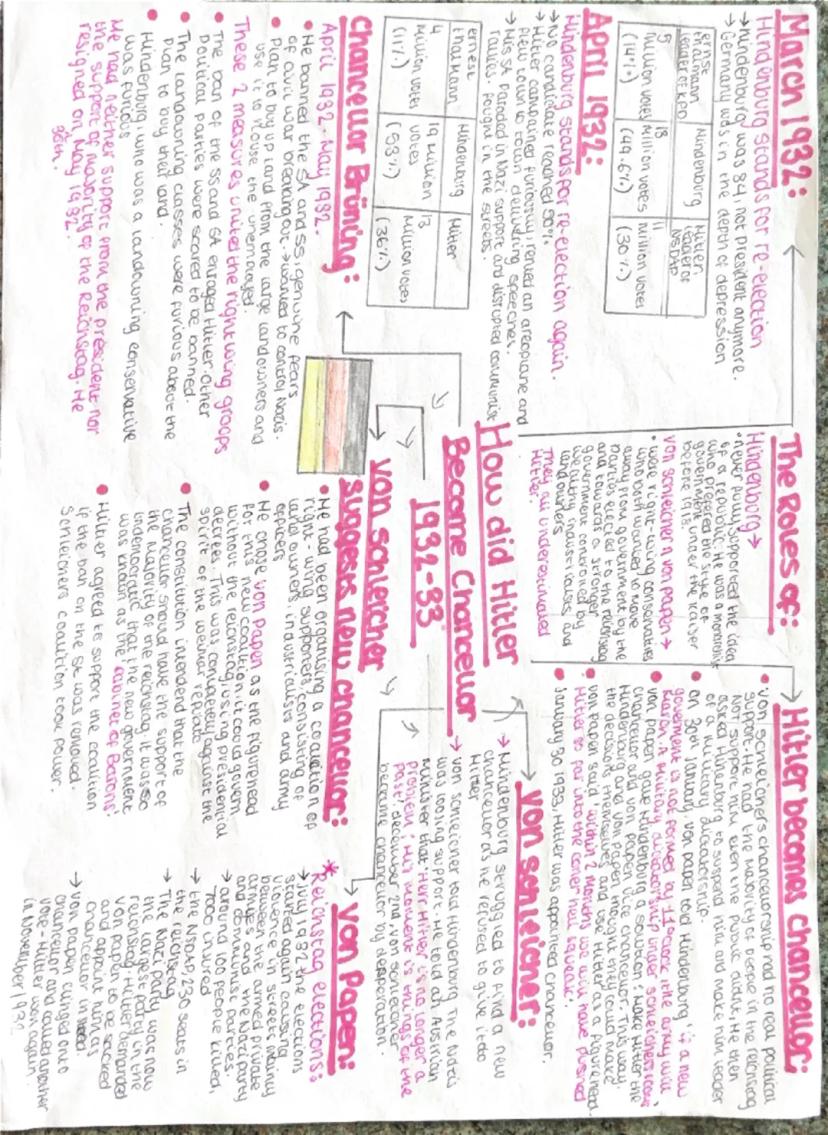 March 1932:
Hindenburg stands for re-election
→ Hindenburg was 84, not president anymore.
→ Germany was in the depth of depression
ernst
thälmann
leader of KPD
Hindenburg
Hitler
leader of
NSDAP
5
million votes
(14%)
18
Million votes
(48.6%)
11
million votes
(30%)
April 1932:
Hindenburg stands for re-election again.
→ No candidate reached 50%.
→ Hitler campaigned furiously, rented an areoplane and
flew town to town delivering speeches.
→ His SA paraded in Nazi support and disrupted communist
rallies. Fought in the streets.
ernest
thälmann
Hindenburg
Hitler
4
Million votes
(11%)
19 million
votes
(53%)
13
Million votes
(36%)
Chancellor Brüning:
April 1932 - May 1932.
• He banned the SA and SS, genuine fears
of civil war breaking out. → wanted to control Nazis.
• Plan to buy up land from the large landowners and
use it to house the unemployed.
These 2 measures united the right wing groups
• The ban of the SS and SA enraged Hitler. Other
Political parties were scared to be banned.
• The landowning classes were furious about the
plan to buy their land.
• Hindenburg, who was a landowning conservative
was furious
He had neither support from the president nor
the support of majority of the Reichstag. He
resigned on May 1932.
30th
How did Hitler
Become Chancellor
1932-33
The Roles of:
Hindenburg →
• never fully supported the idea
of a republic. He was a monarchist
who prefered the style of
government under the Kaiser
before 1918.
von schleicher n von papen →
• were right-wing conservatives
who both wanted to move
away from government by the
parties elected to the reichstag
and towards a stronger
government controlled by
wealthy industrialists, and
landowners
They all underestimated
Hitler.
von schleicher
suggests new chancellor:
• He had been organising a coalition of
right-wing supporters, consisting of
landowners, industrialises and army
officers
• He chose von Papen as the figurehead
for this new coalition, it could govern
without the reichstag, using presidential
decrees. This was completely against the
spirit of the weimar republic
• The constitution intended that the
chancellor should have the support of
the majority of the reichstag. it was so
undemocratic that the new government
was known as the 'cabinet of Barons'
• Hitler agreed to support the coalition
if the ban on the SA was removed.
Schleichers coalition took power.
Hitler becomes chancellor:
• von schleichers chancellorship had no real political
support. He had the majority of people in the reichstag
NOT support him, even the public didnt, He then
asked Hindenburg to suspend him and make him leader
of a military dictatorship.
• on 30th January, von papen told Hindenburg 'if a new
goverment is not formed by 11 o'clock the army will
march. A military dictatorship under schleichers looms'
• von papen gave Hindenburg a solution: Make Hitler the
chancellor and von papen vice chancellor. This way,
Hindenburg and von papen thought they could make
the decisions themselves and use Hitler as a figurehead.
• von Papen said 'within 2 months we will have pushed
Hitler so far into the corner he'll squeak.'
• January 30 1933, Hitler was appointed chancellor.
von schleicher:
→ Hindenburg struggled to find a new
chancellor as he refused to give it to
Hitler
→ von schleicher told Hindenburg the Nazi's
was losing support. He told an Austrian
Minister that 'Herr Hitler is no longer a
problem; His moment is things of the
past.' december 2nd, von schleicher
became chancellor by desperation.
→ von Papen:
* Reichstag elections:
→ July 1932 the elections
started again causing
violence in streets mainly
between the armed private
armies and the Nazi party
and communist parties.
→ around 100 people killed,
7000 injured
→ the NSDAP, 230 seats in
the reichstag
→ The Nazi Party was now
the largest party in the
reichstag. Hitler demanded
von papen to be sacked
and appoint him as
chancellor instead
→ von papen clinged onto
chancellor and called another
vote - Hitler won again.
in November 1932